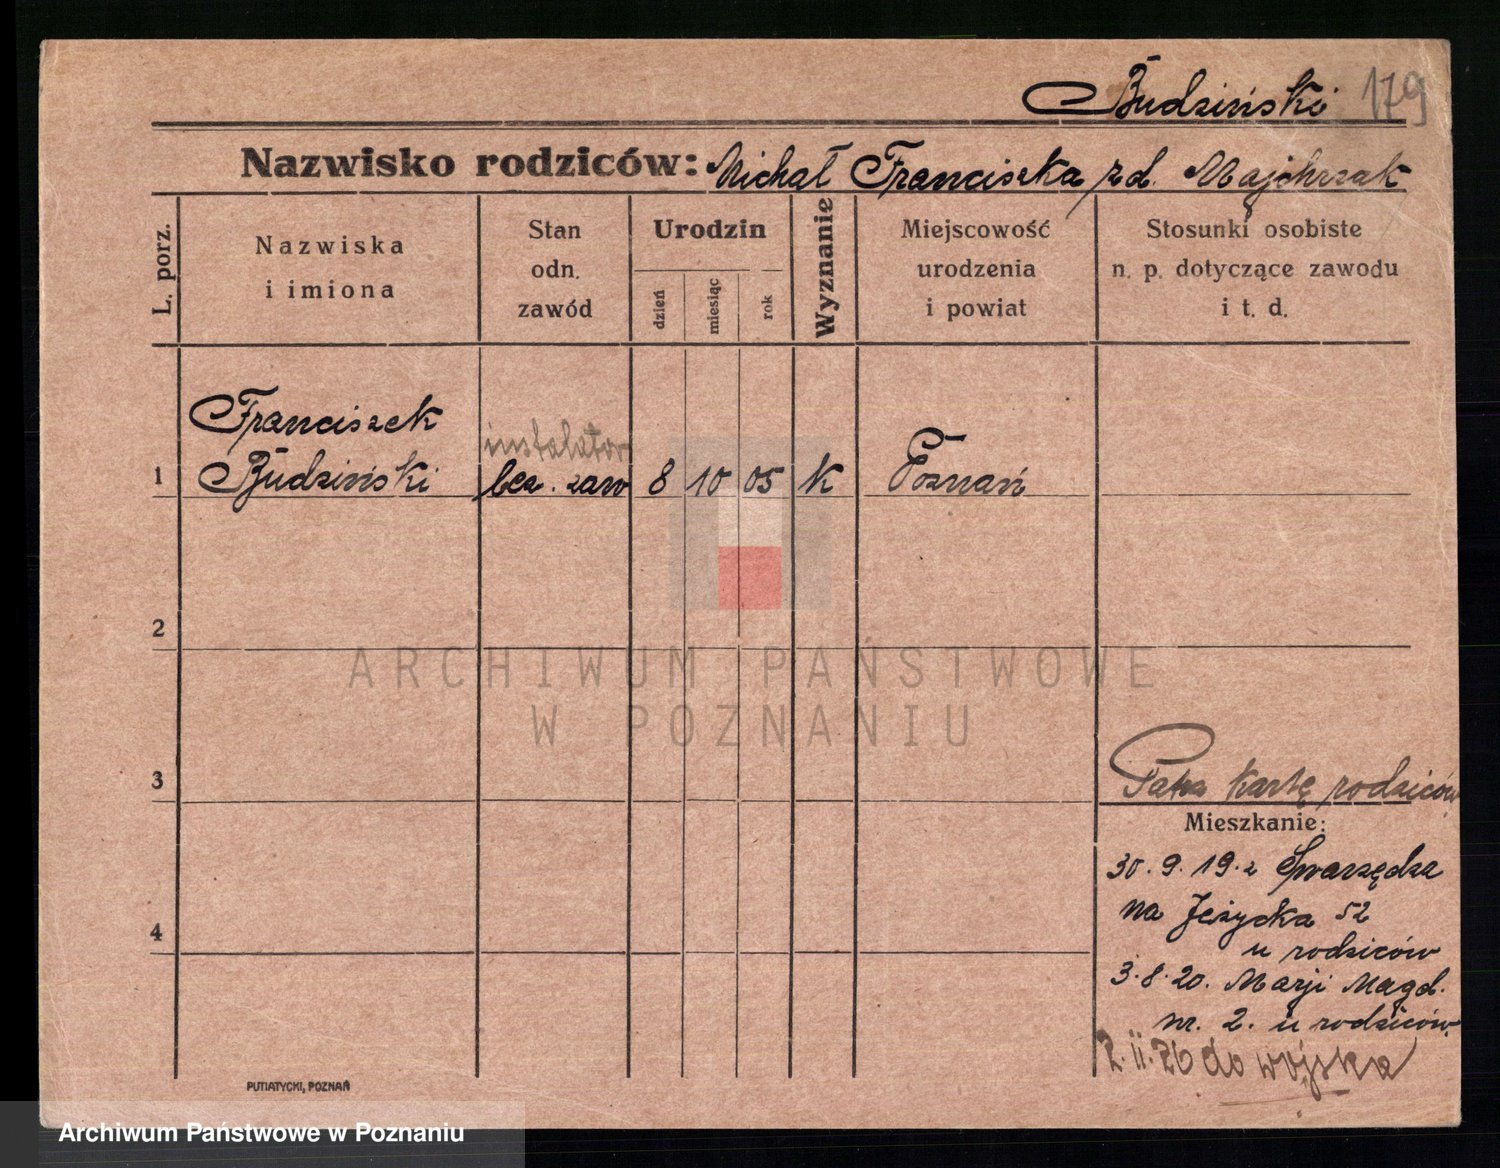 Budziński 179
Nazwisko rodziców: Michał Franciszka zd. Majchrzak
L. porz.
Nazwiska
i imiona
Stan
odn.
zawód
Urodzin
dzień
miesiąc
rok
Wyznanie
Miejscowość
urodzenia
i powiat
Stosunki osobiste
n. p. dotyczące zawodu
i t. d.
Franciszek
instalator
1 Budziński bez. zaw 8 10 05 K Poznań
2
ARCHIWUM PAŃSTWOWE
W POZNANIU
3
Patrz kartę rodziców
Mieszkanie:
30.9.19. z Swarzędza
na Jeżycka 52
u rodziców
4
3.8.20. Marji Magd.
nr. 2. u rodziców
2.II.26 do wojska
PUTIATYCKI, POZNAŃ
Archiwum Państwowe w Poznaniu